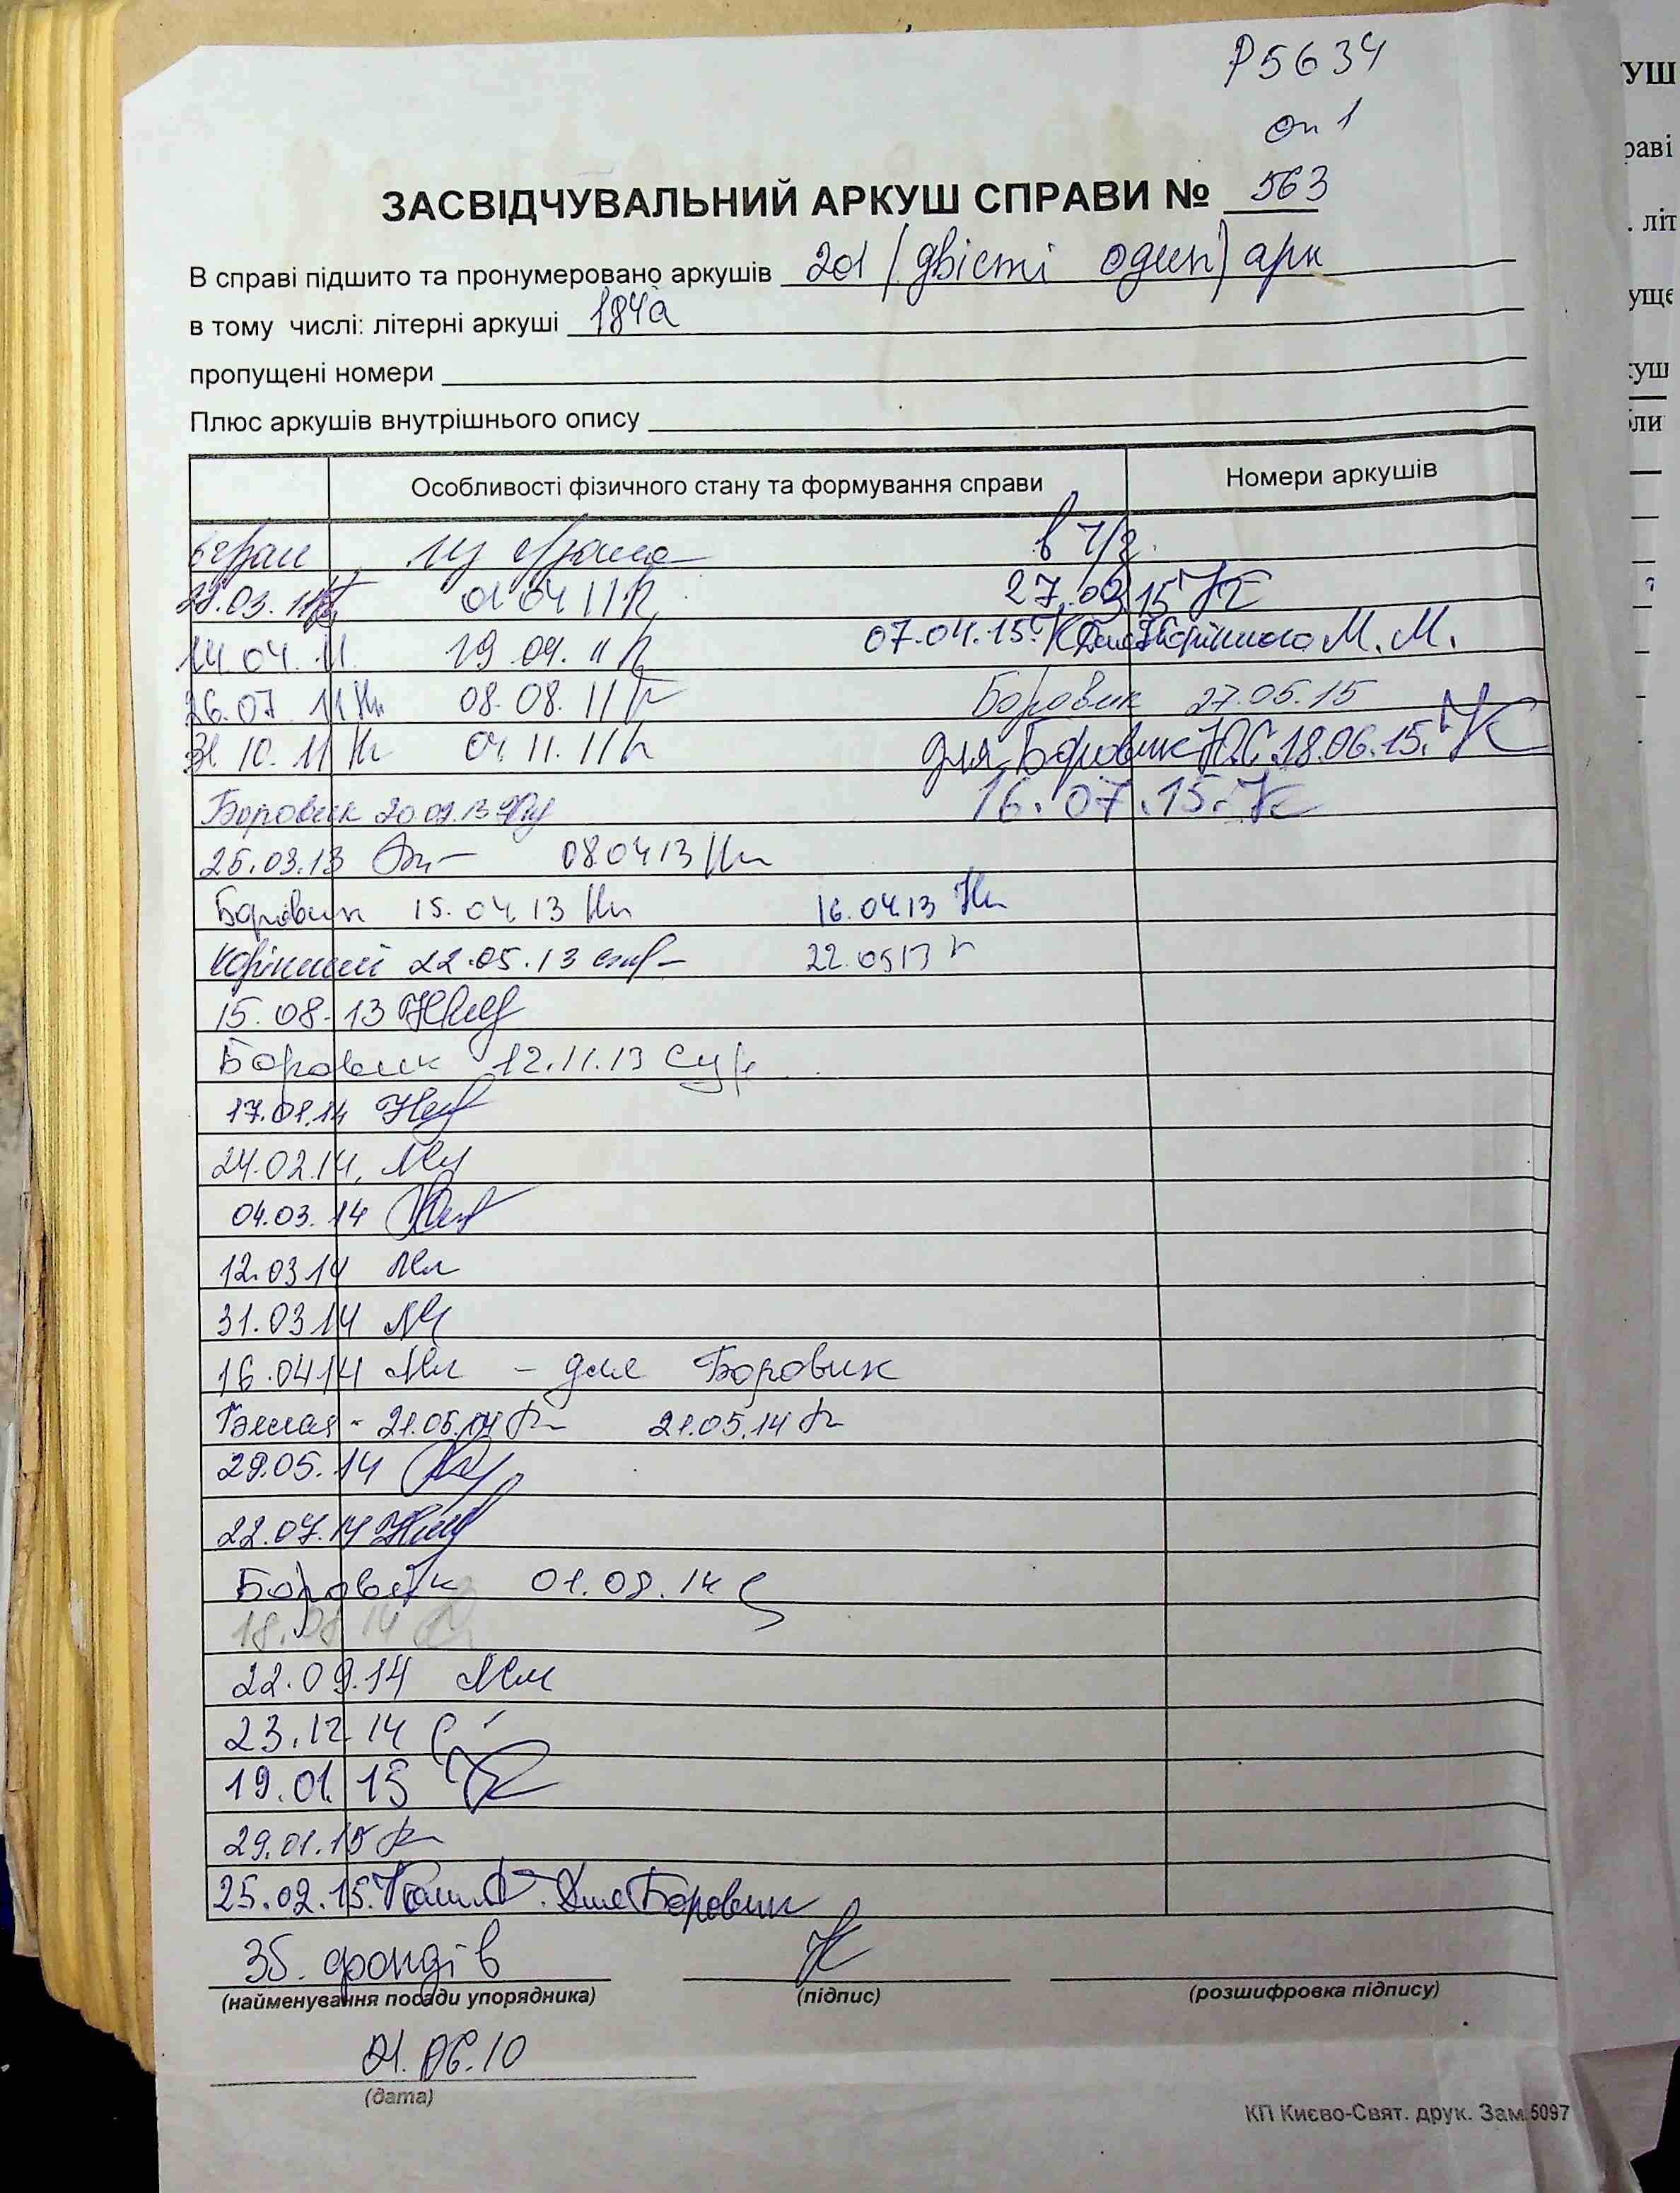 Р5634
оп 1
ЗАСВІДЧУВАЛЬНИЙ АРКУШ СПРАВИ № 563
В справі підшито та пронумеровано аркушів 201 (двісті один) арк
в тому числі: літерні аркуші 184а
пропущені номери
Плюс аркушів внутрішнього опису
Особливості фізичного стану та формування справи Номери аркушів
в ч/з
28.03.11 01 04 11 27.03.15
14.04.11 19.04.11 07.04.15. М.М.
26.07.11 08.08.11 Боровик 27.05.15
31.10.11 04.11.11 для Боровик 18.06.15.
Боровик 20.02.13 16.07.15.
25.03.13 08 04 13
Боровик 15.04 13 16.04.13
Корінний 22.05.13 22.05 13
15.08.13
Боровик 12.11.13
17.01.14
24.02.14
04.03.14
12.03 14
31.03 14
16.04 14 – для Боровик
21.05.14 21.05.14
29.05.14
22.07.14
Боровик 01.08.14
18.08 14
22.09.14
23.12 14
19.01.15
29.01.15
25.02.15. Для Боровик
Зб. фондів
(найменування посади упорядника) (підпис) (розшифровка підпису)
01.06.10
(дата)
КП Києво-Свят. друк. Зам.5097
УШ
раві
. літ
уще
куш